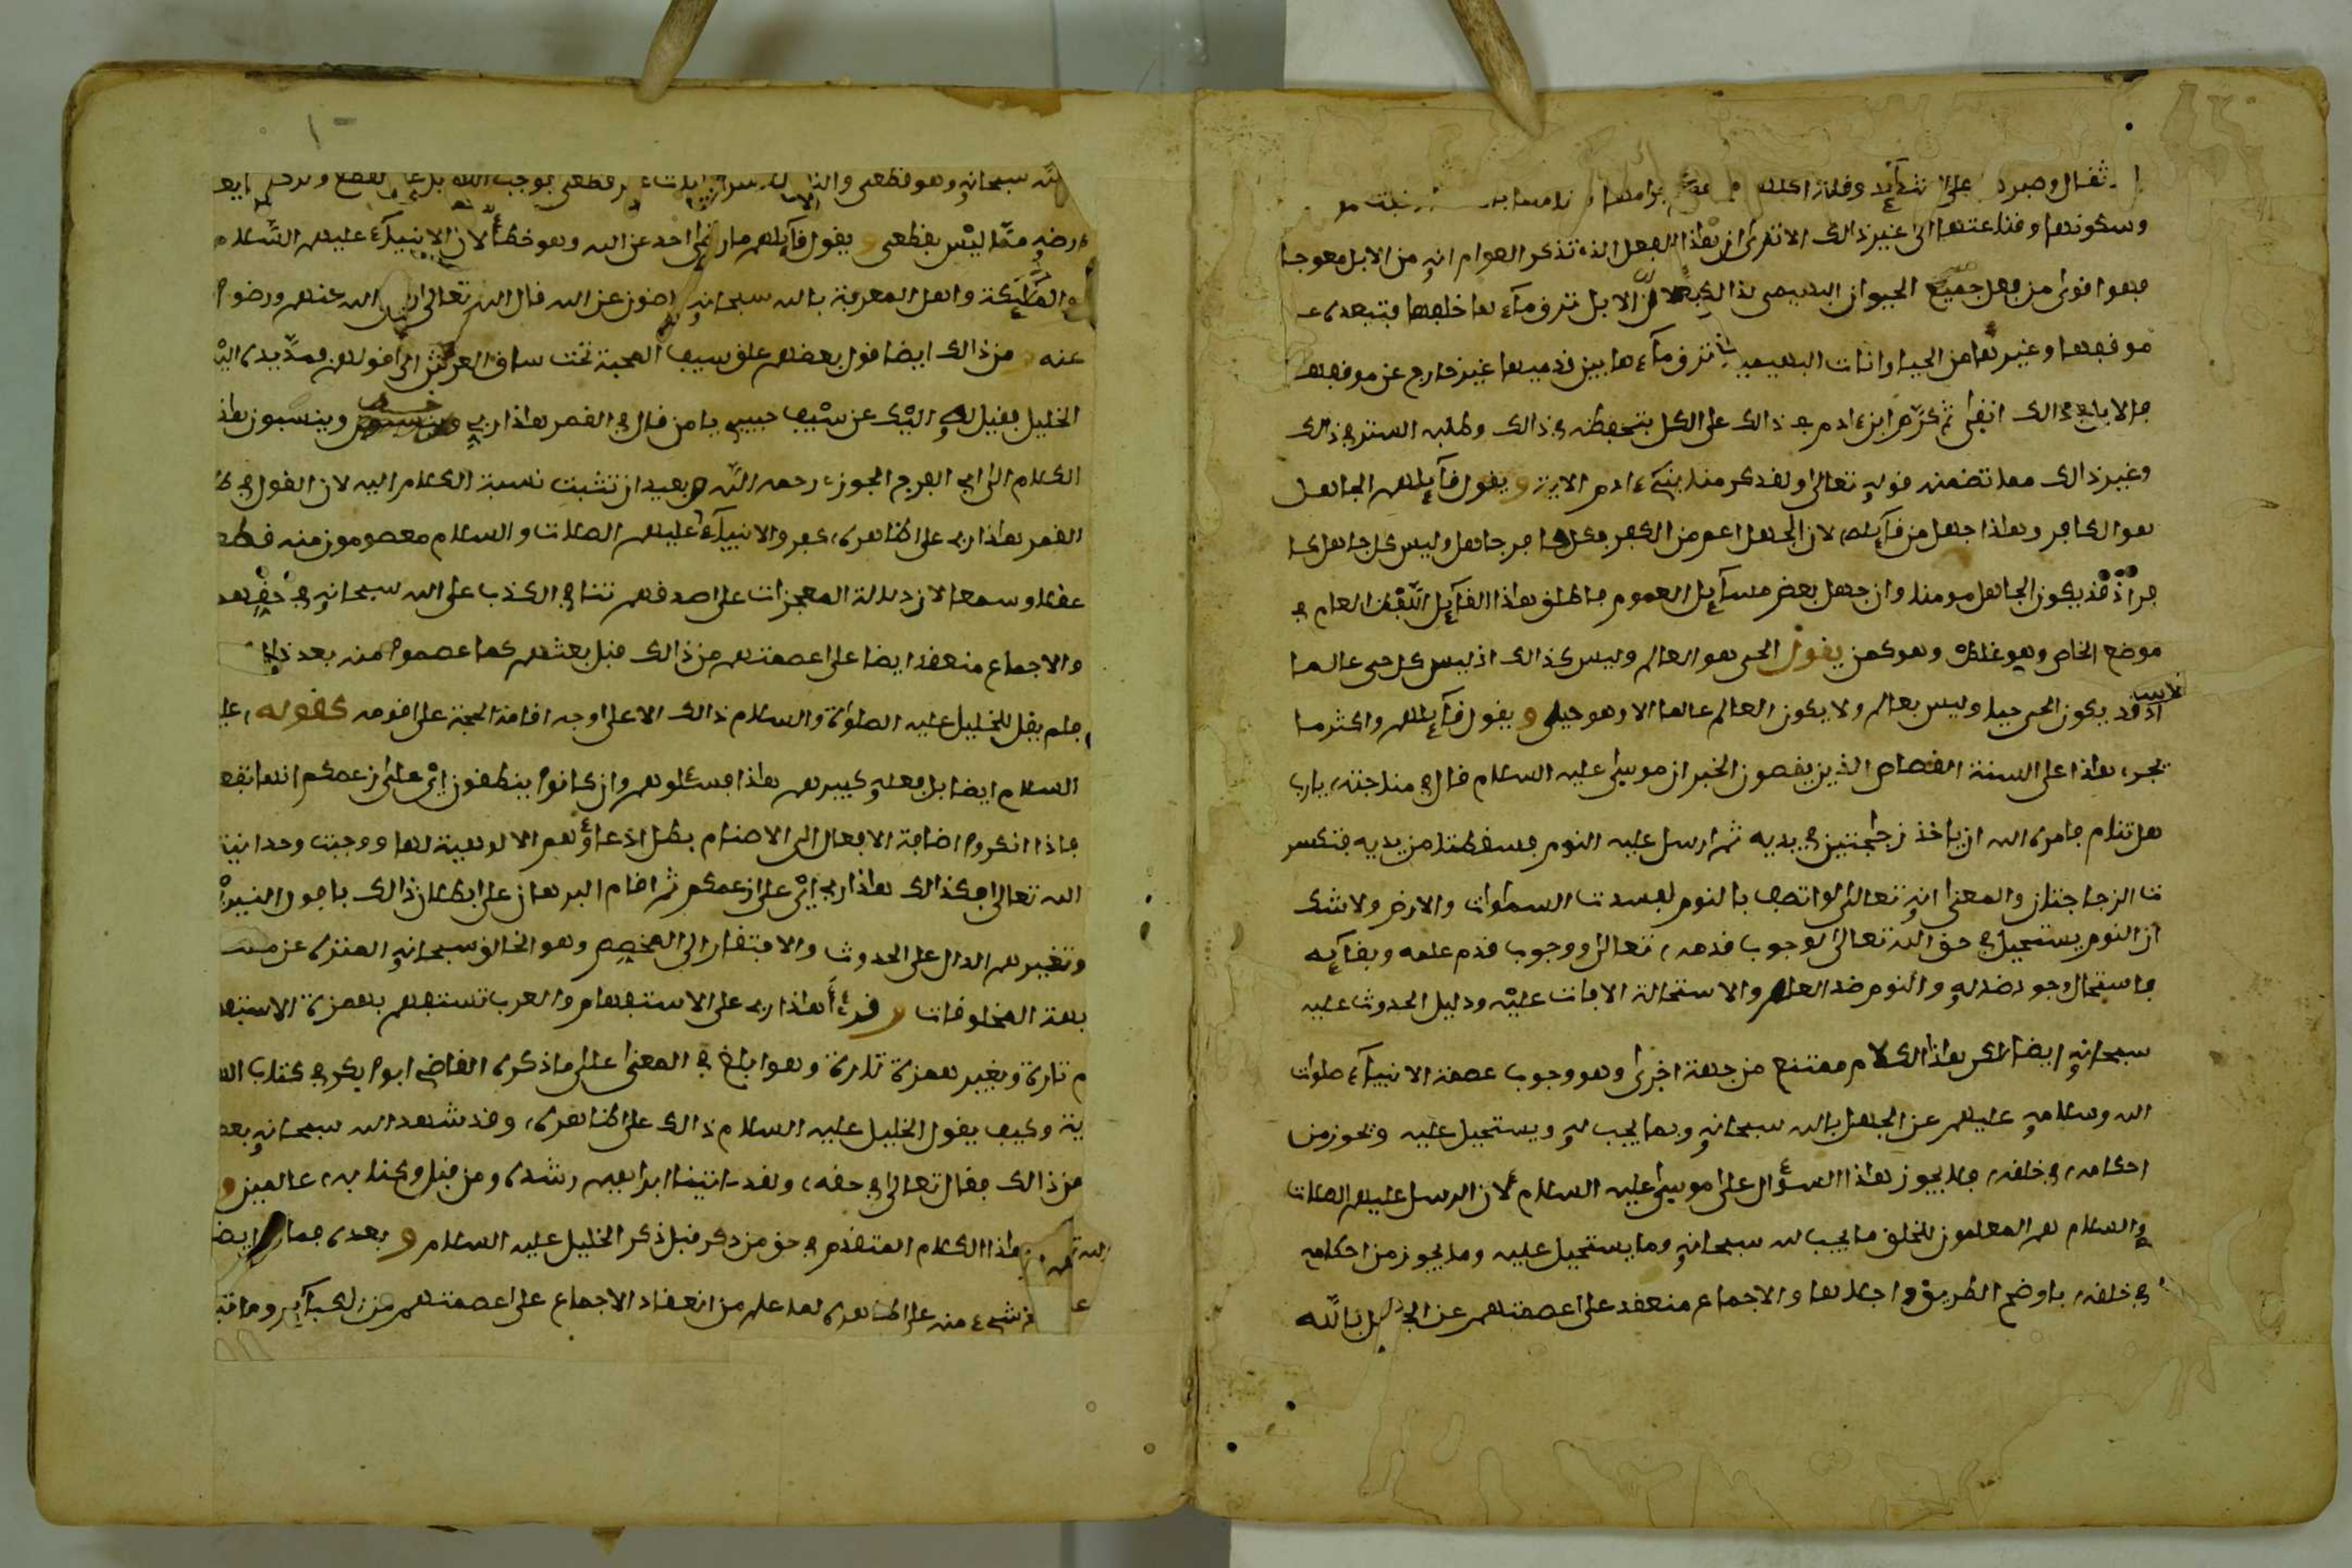 وسكونها وقناعتها الى غير ذالك الا ترى ان هذا الفعل الذي تذكر العوام انه من الابل معوجا
فهوا قوى من فعل جميع الحيوان البهيمى لان الابل تزق ماء ها خلفها فتبعده عـ
موقفها وغيرها من الحيوانات البهيمية تزق ماء ها بين قدميها غير خارج عن موقفها
فالابل في ذالك انقى ثم كرم ابن ءادم في ذالك على الكل بتحفظه في ذالك وطلبه الستر في ذالك
وغير ذالك مما تضمنه قوله تعالى ولقد كرمنا بنى ءادم الاية و يقول قآيلهم الجاهل
هوا الكافر وهاذا جهل من قآيله لان الجهل اعم من الكفر فكل كافر جاهل وليس كل جاهل كا
فر اذ قد يكون الجاهل مومنا وان جهل بعض مسآيل العموم فاطلق هاذا القآيل اللفظ العام في
موضع الخاص وهو غلط وهو كمن يقول الحى هو العالم وليس كذالك اذ ليس كل حى عالما
اذ قد يكون الحى حيا وليس بعالم ولا يكون العالم عالما الا وهو حى و يقول قآيلهم واكثر ما
يجرى هاذا على السنة القصاص الذين يقصون الخبر ان موسى عليه السلام قال في مناجته يارب
هل تنام فامره الله ان ياخذ زجاجتين في يديه ثم ارسل عليه النوم فسقطتا من يديه فتكسر
تا الزجاجتان والمعنى انه تعالى لو اتصف بالنوم لفسدت السماوات والارض ولا شك
ان النوم يستحيل في حق الله تعالى لوجوب قدمه تعالى ووجوب قدم علمه وبقآيه
فاستحال وجود ضدله والنوم ضد العلم والاستحالة الافات عليه ودليل الحدوث عليه
سبحانه ايضا لكن هاذا الكلام ممتنع من جهة اخرى وهو وجوب عصمة الانبيآء صلوات
الله وسلامه عليهم عن الجهل بالله سبحانه وبما يجب له ويستحيل عليه ويجوز من
احكامه في خلقه فلا يجوز هاذا السؤال على موسى عليه السلام لان الرسل عليهم الصلات
والسلام هم المعلمون للخلق ما يجب لله سبحانه وما يستحيل عليه وما يجوز من احكامه
في خلقه باوضح الطريق واجلاها والاجماع منعقد على عصمتهم عن الجهل بالله
١٠
الله سبحانه وهو قطعى
ارضه مما ليس بقطعى و يقول قآيلهم ما رضى احد عن الله وهو خطأ لان الانبيآء عليهم السلام
والملآيكة واهل المعرفة بالله سبحانه راضون عن الله قال الله تعالى رضى الله عنهم ورضوا
عنه و من ذالك ايضا قول بعضهم علق سيف المحبة تحت ساق العرش الى قولهن فمد يده اليه
الخليل فقيل له اليك عن سيف حبيبى يا من قال في القمر هاذا ربى وينسبون هاذ
الكلام الى ابى الفرج الجوزى رحمه الله وبعيد ان تثبت نسبة الكلام اليه لان القول في
القمر هاذا ربى على ظاهره كفر والانبيآء عليهم الصلات والسلام معصومون منه قطعا
عقلا وسمعا لان دلالة المعجزات على صدقهم تنافي الكذب على الله سبحانه في حقهم
والاجماع منعقد ايضا على عصمتهم من ذالك قبل بعثهم كما عصموا منه بعد ذالك
فلم يقل للخليل عليه الصلواة والسلام ذالك الا على وجه اقامة الحجة على قومه كقوله عليه
السلام ايضا بل فعله كبيرهم هاذا فسئلوهم وان كانوا ينطقون اى على زعمكم انها تفعـ
فاذا انكروا اضافة الافعال الى الاصنام بطل ادعاؤهم الالوهية لها ووجبت وحدانية
الله تعالى فكذالك هاذا ربى اى على زعمكم ثم اقام البرهان على ابطال ذالك بافول النير
وتغييرهم الدال على الحدوث والافتقار الى المخصص وهو الخالق سبحانه المنزه عن مشا
بهة المخلوقات و قرئ أهاذا ربى على الاستفهام والعرب تستفهم بهمزة الاستفها
م تارة وبغير همزة تارة وهوا بلغ في المعنى على ما ذكره القاضى ابوا بكر في كتاب الهد
ية وكيف يقول الخليل عليه السلام ذالك على ظاهره وقد شهد الله سبحانه بعصـ
من ذالك فقال تعالى في حقه ولقد ءاتينا ابراهيم رشده ومن قبل وكنا به عالمين و
هاذا الكلام المتقدم في حق من ذكر قبل ذكر الخليل عليه السلام و بعده فما ايضا
شىء منه على ظاهره لما علم من انعقاد الاجماع على عصمتهم من الكبآير وما قتـ